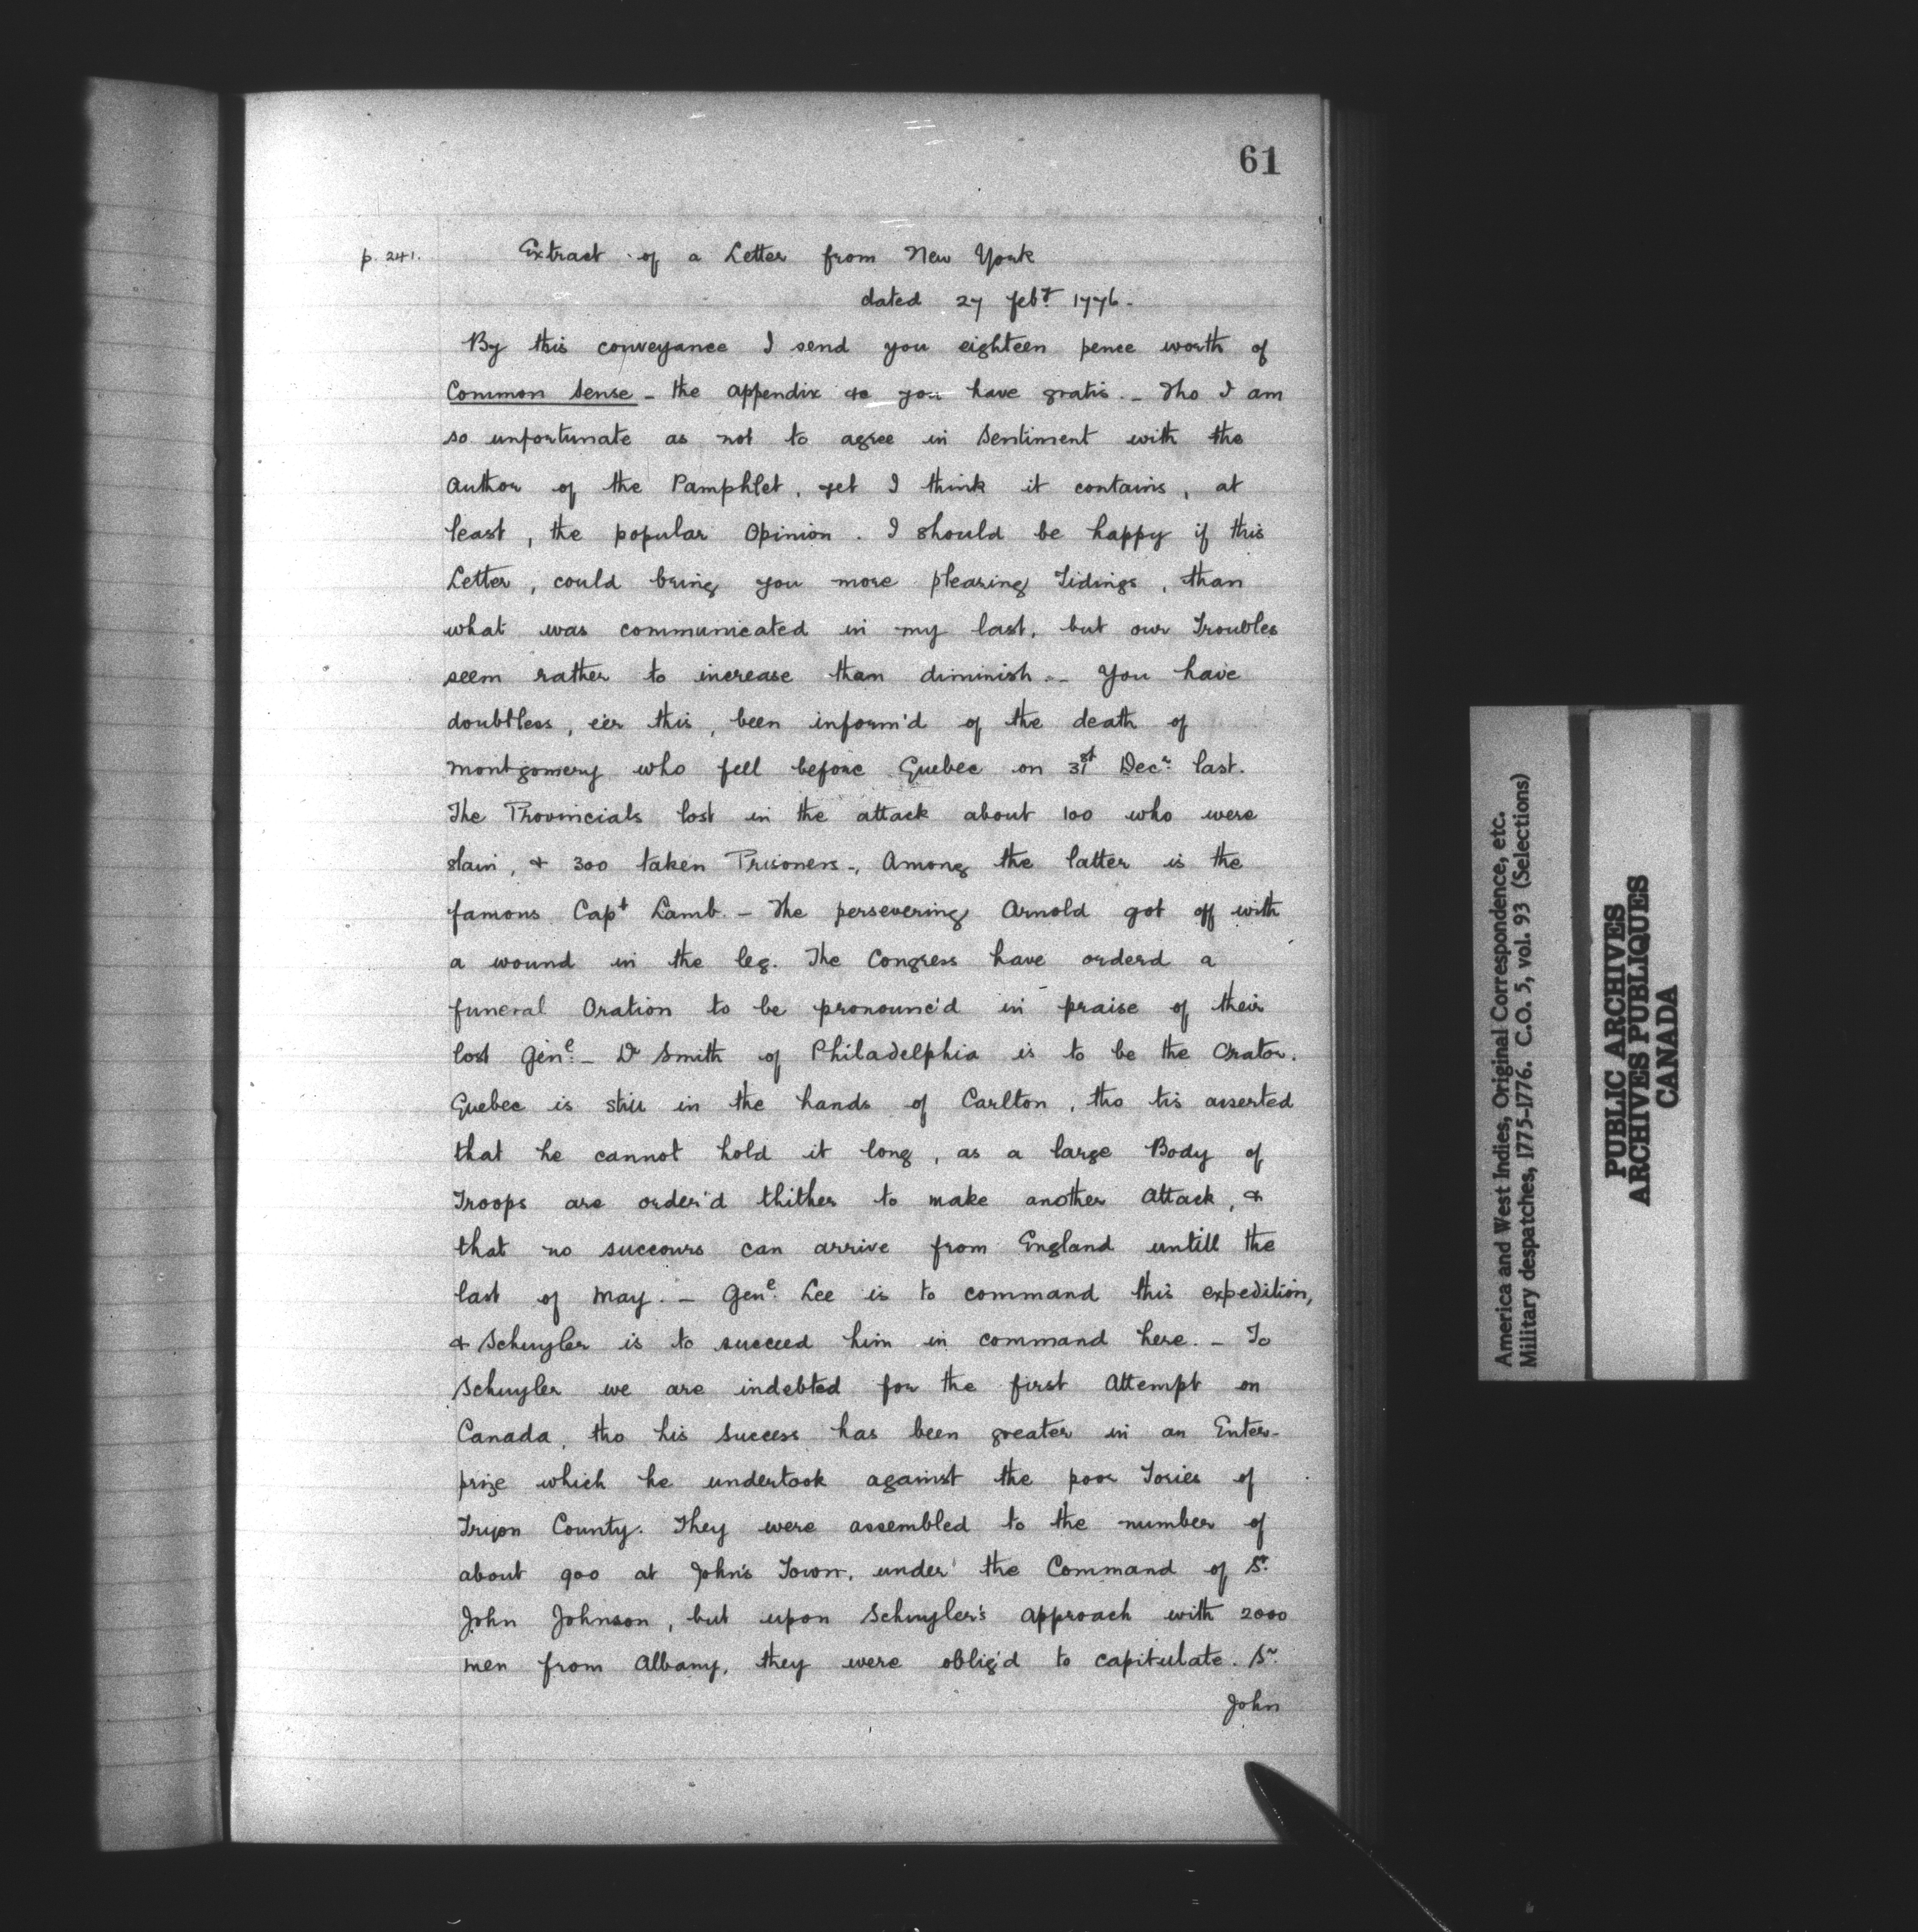 61
p. 241. Extract of a Letter from New York
dated 27 feb.y 1776.
By this conveyance I send you eighteen pence worth of
Common Sense - the appendix &c you have gratis. - Tho I am
so unfortunate as not to agree in Sentiment with the
Author of the Pamphlet, yet I think it contains, at
least, the popular Opinion. I should be happy if this
Letter, could bring you more pleasing Tidings, than
what was communicated in my last, but our Troubles
seem rather to increase than diminish. - You have
doubtless, e'er this, been inform'd of the death of
Montgomery who fell before Quebec on 31st Dec.r last.
The Provincials lost in the attack about 100 who were
slain, & 300 taken Prisoners -, Among the latter is the
famous Capt Lamb. - The persevering Arnold got off with
a wound in the leg. The Congress have orderd a
funeral Oration to be pronounc'd in praise of their
lost Gen.l - Dr Smith of Philadelphia is to be the Orator.
Quebec is still in the hands of Carlton, tho tis asserted
that he cannot hold it long, as a large Body of
Troops are order'd thither to make another Attack, &
that no succours can arrive from England untill the
last of May. - Gen.l Lee is to command this expedition,
& Schuyler is to succeed him in command here. - To
Schuyler we are indebted for the first Attempt on
Canada, tho his Success has been greater in an Enter-
prize which he undertook against the poor Tories of
Tryon County. They were assembled to the number of
about 900 at John's Town, under the Command of S.r
John Johnson, but upon Schuyler's approach with 2000
men from Albany, they were oblig'd to capitulate. S.r
John
America and West Indies, Original Correspondence, etc.
Military despatches, 1775-1776. C.O. 5, vol. 93 (Selections)
PUBLIC ARCHIVES
ARCHIVES PUBLIQUES
CANADA